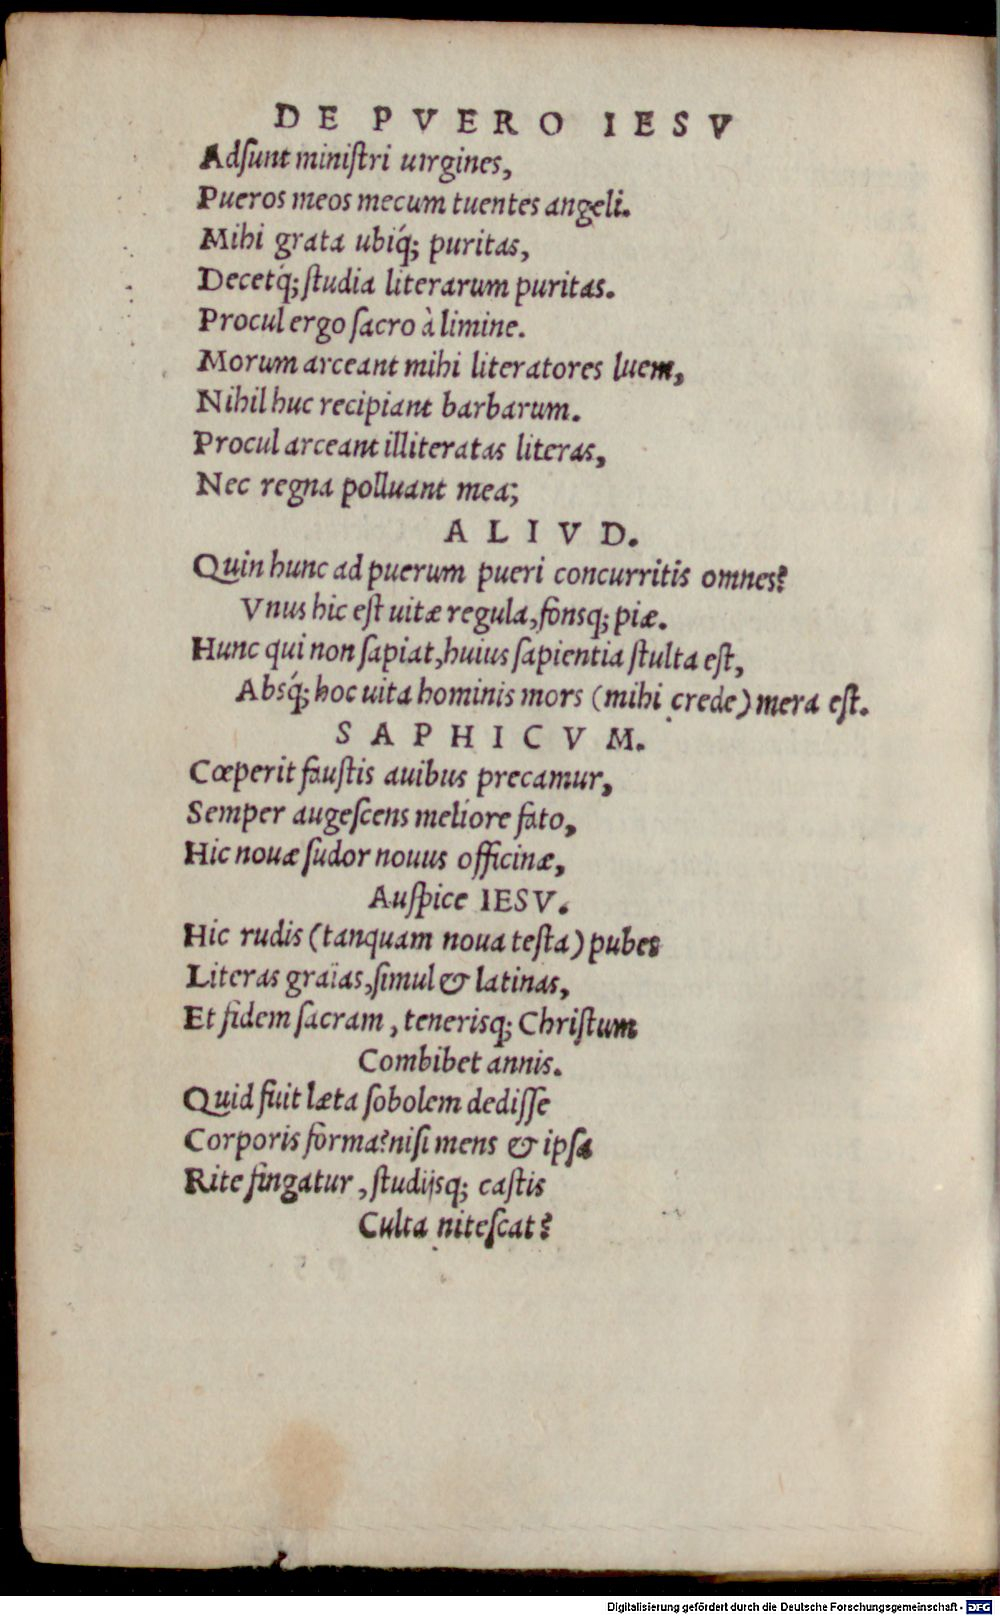 DE PVERO IESV
Adſunt miniſtri uirgines,
Pueros meos mecum tuentes angeli.
Mihi grata ubiq́; puritas,
Decetq́; ſtudia literarum puritas.
Procul ergo ſacro à limine.
Morum arceant mihi literatores luem,
Nihil huc recipiant barbarum.
Procul arceant illiteratas literas,
Nec regna polluant mea;
ALIVD.
Quin hunc ad puerum pueri concurritis omnes?
Vnus hic eſt uitæ regula, fonsq; piæ.
Hunc qui non ſapiat, huius ſapientia ſtulta eſt,
Absq́; hoc uita hominis mors (mihi crede) mera eſt.
SAPHICVM.
Cœperit fauſtis auibus precamur,
Semper augeſcens meliore fato,
Hic nouæ ſudor nouus officinæ,
Auſpice IESV.
Hic rudis (tanquam noua teſta) pubes
Literas graïas, ſimul & latinas,
Et fidem ſacram, tenerisq; Chriſtum
Combibet annis.
Quid fuit læta ſobolem dediſſe
Corporis forma? niſi mens & ipſa
Rite fingatur, ſtudijsq; caſtis
Culta niteſcat?
Digitalisierung gefördert durch die Deutsche Forschungsgemeinschaft - DFG